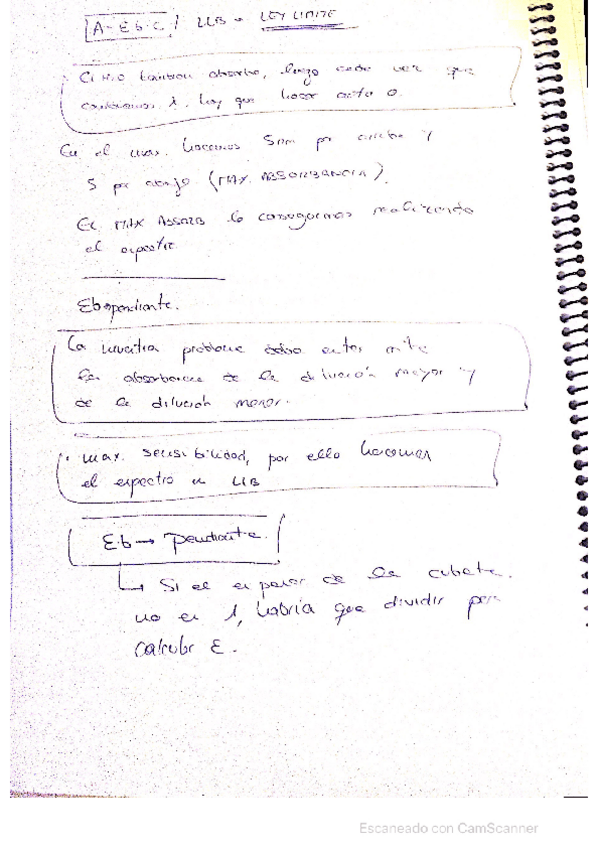 A=E·b·C / LLB → LEY LIMITE
H2O también absorbe, luego cada vez que
cambiamos λ, hay que hacer auto 0.
En el max. hacemos 5nm por arriba y
5 por abajo (MAX. ABSORBANCIA).
El MAX ABSORB lo conseguimos realizando
el espectro
Eb→pendiente.
La muestra problema debe entre
la absorbancia de la dilución mayor y
de la dilución menor.
· max. sensibilidad, por ello hacemos
el espectro
E·b → Pendiente.
↳ Si el espesor de la cubeta
no es 1, habría que dividir para
calcular E.
Escaneado con CamScanner